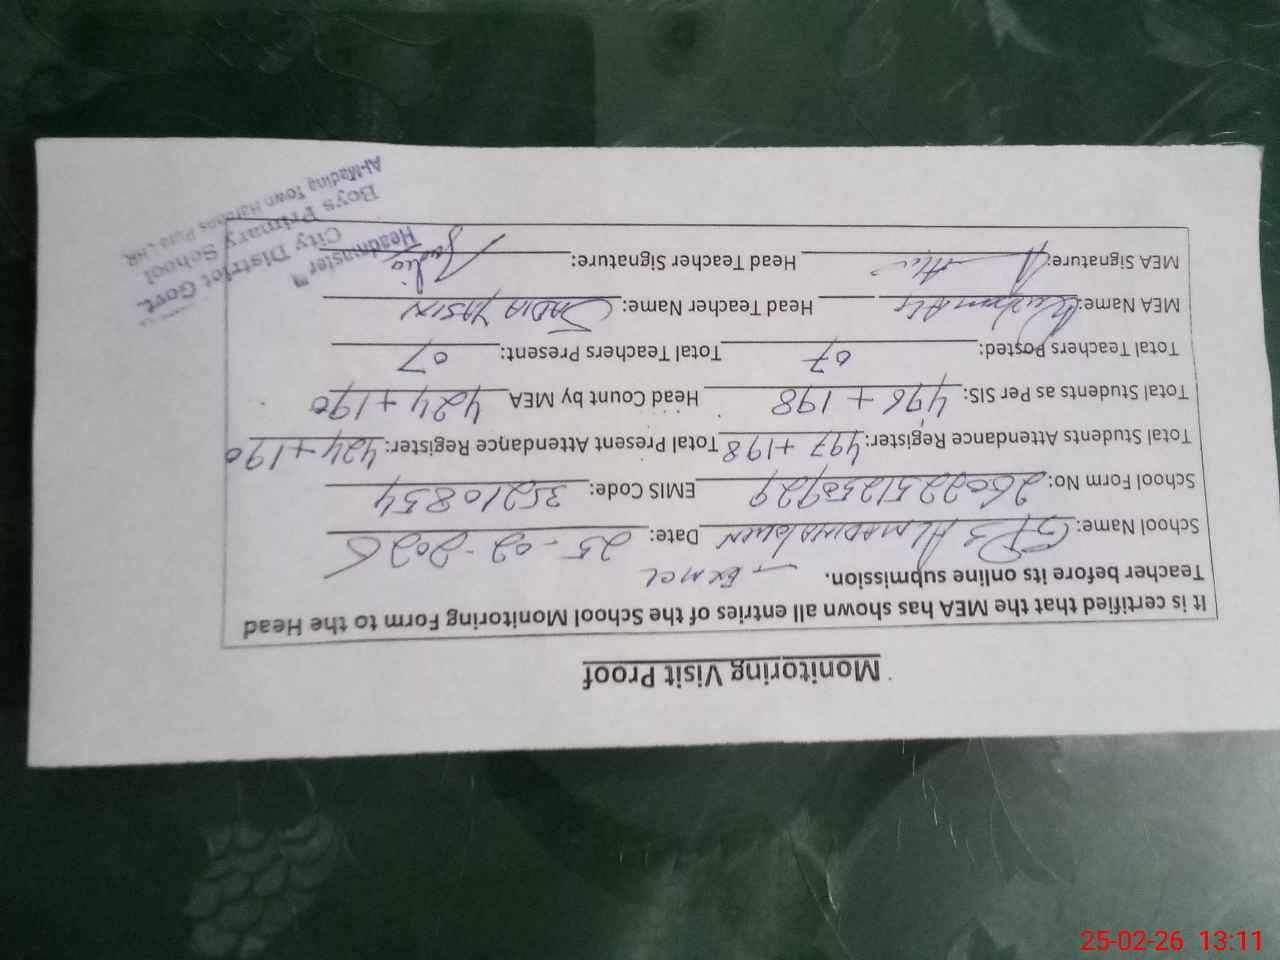 Monitoring Visit Proof
It is certified that the MEA has shown all entries of the School Monitoring Form to the Head
Teacher before its online submission. - EXMCL
School Name: GPS ALMADINA TOWN Date: 25-02-2026
School Form No: EMIS Code: 35210854
Total Students Attendance Register: 497+198 Total Present Attendant Register: 424+190
Total Students as Per SIS: 496+198 Head Count by MEA 424+190
Total Teachers Posted: 07 Total Teachers Present: 07
MEA Name: Head Teacher Name: SADIA YASIN
MEA Signature: Head Teacher Signature: Sadia
Headmaster
City District Govt.
Boys Primary School
Al-Madina Town
25-02-26 13:11